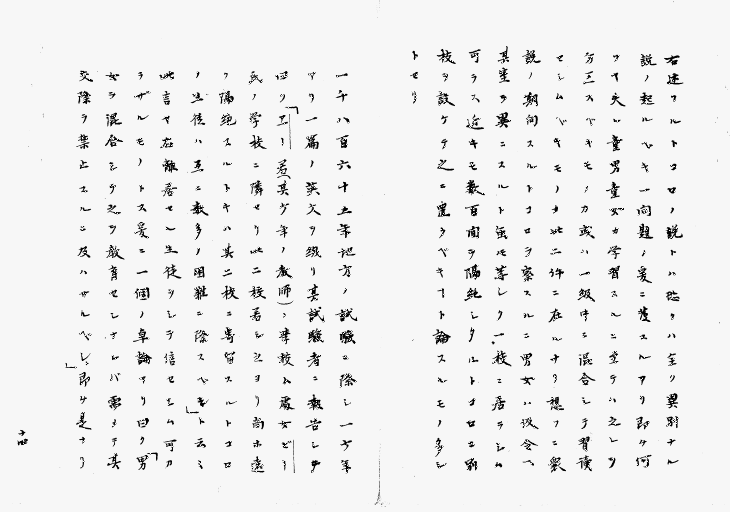 右述フルトコロノ説トハ恐クハ全ク異別ナル
説ノ起ルベキ一問題ノ爰ニ存スルアリ即チ何
ゾヤ夫レ童男童女ガ学習スルニ当テハ之レヲ
分ニスベキモノカ或ハ一級中ニ混合シテ習読
セシムベキモノカ此二件ニ在ルナリ想フニ衆
説ノ期向スルトコロヲ察スルニ男女ハ仮令ヘ
其室ヲ異ニスルト虽モ等シク一校ニ居ラシム
可ラス近キモ数百間ヲ隔絶シタルトコロニ別
校ヲ設ケテ之ニ置ラベキ
ト論スルモノ多シ
トセリ
一千八百六十五年地方ノ試験ニ際シ一少年
アリ一篇ノ英文ヲ綴リ其試験者ニ報告シテ
曰ク
若(其少年ノ教師)ノ学校ハ処女
氏ノ学校ニ隣セリ此二校若シ之ヨリ尚ホ遠
ク隔絶スルトキハ其二校ニ寄留スルトコロ
ノ生徒ハ互ニ数多ノ困難ニ際スベキト云ミ
此言ヤ在離居セシ生徒ヲシテ信セセム可カ
ラザルモノトス爰ニ一個ノ卓論アリ曰ク「男
女ヲ混合シテ之ヲ教育セシナレバ需メテ其
交際ヲ禁止スルニ及ハザルベシ」即チ是ナリ
十四